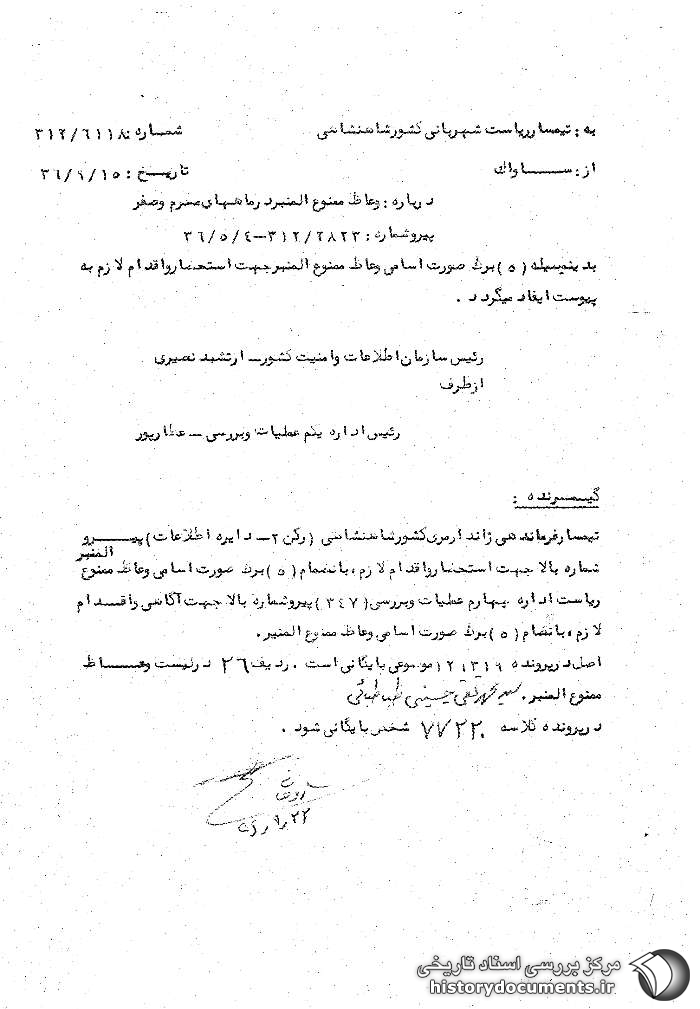 به : تیمسار ریاست شهربانی کشور شاهنشاهی شماره : ۳۱۲/۶۱۱۸
از : ســـاواك تاریــخ : ۳۶/۹/۱۵
درباره : وعاظ ممنوع المنبر در ماههای محرم و صفر
پیرو شماره : ۳۱۲/۲۸۲۳-۳۶/۵/۴
بدینوسیله (۵) برك صورت اسامی وعاظ ممنوع المنبر جهت استحضار و اقدام لازم به
پیوست ایفاد میگردد .
رئیس سازمان اطلاعات و امنیت کشور ــ ارتشبد نصیری
از طرف
رئیس اداره یکم عملیات و بررسی ــ عطارپور
گیـــرنده :
تیمسار فرماندهی ژاندارمری کشور شاهنشاهی (رکن ۲ــ دایره اطلاعات) پیــرو
شماره بالا جهت استحضار و اقدام لازم ، بانضمام (۵) برك صورت اسامی وعاظ ممنوع المنبر
ریاست اداره چهارم عملیات و بررسی (۳۴۷) پیرو شماره بالا جهت آگاهی و اقــدام
لازم ، بانضمام (۵) برك صورت اسامی وعاظ ممنوع المنبر .
اصل در پرونده ۱۲۱۳۱۹ موضوعی بایگانی است . ردیف ۲۶ در لیست وعـــاظ
ممنوع المنبر . سید محمد تقی حسینی طباطبائی
در پرونده کلاسه ۷۷۲۲۰ شخص بایگانی شود .
مرکز بررسی اسناد تاریخی
historydocuments.ir